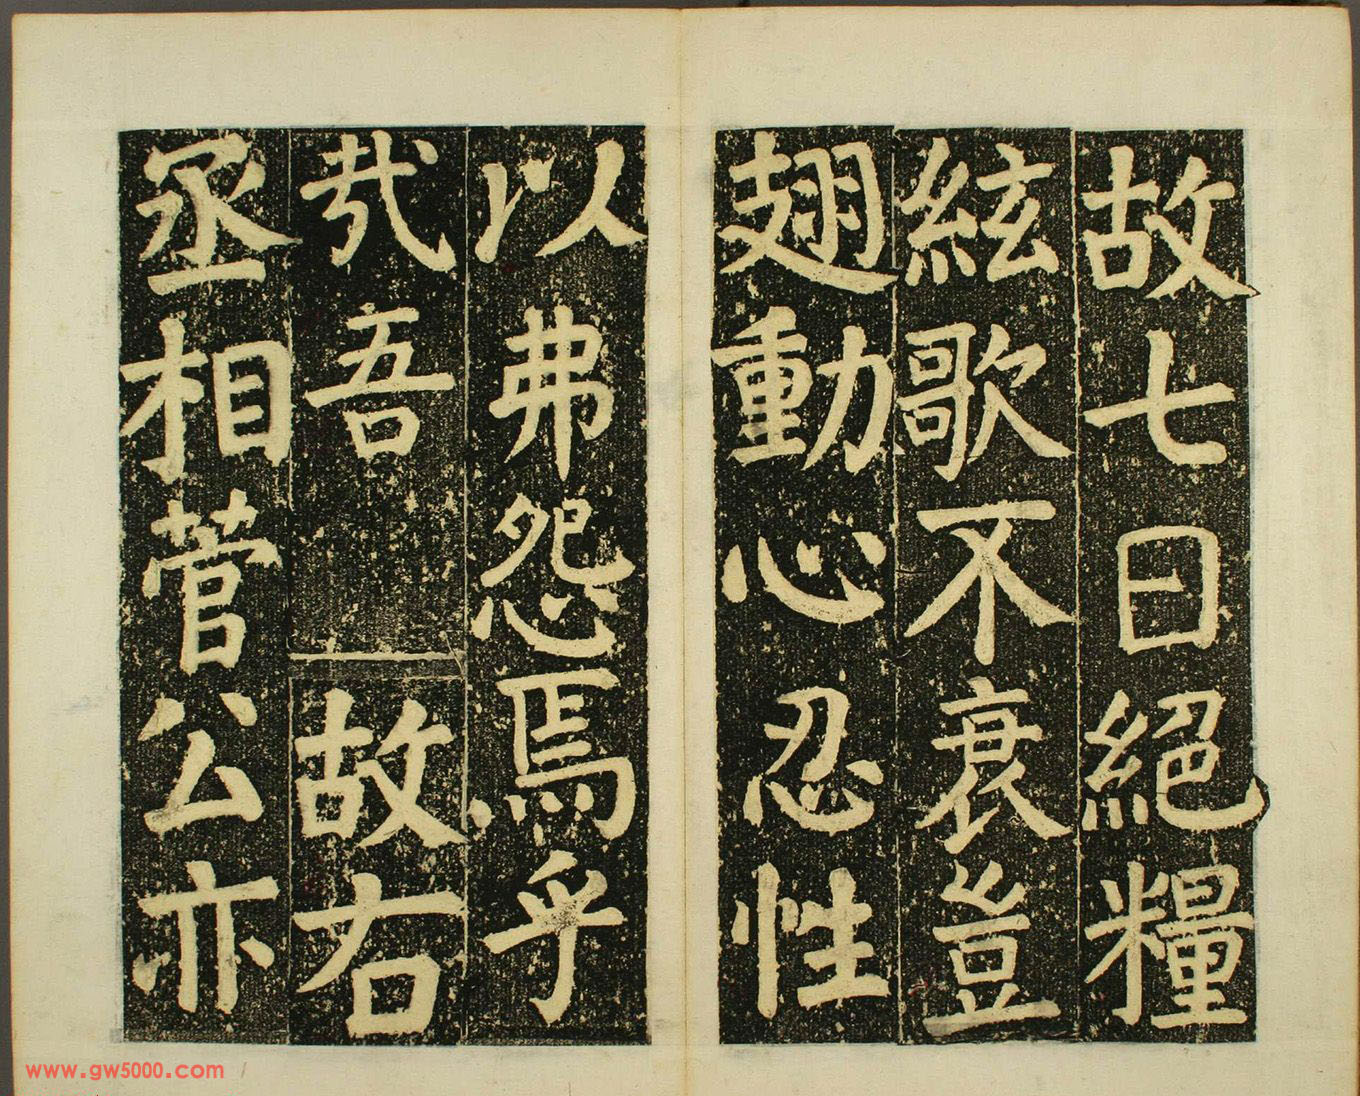 故七日絕糧
絃歌不衰豈
翅動心忍性
以弗怨焉乎
哉吾故右
丞相管公亦
www.gw5000.com